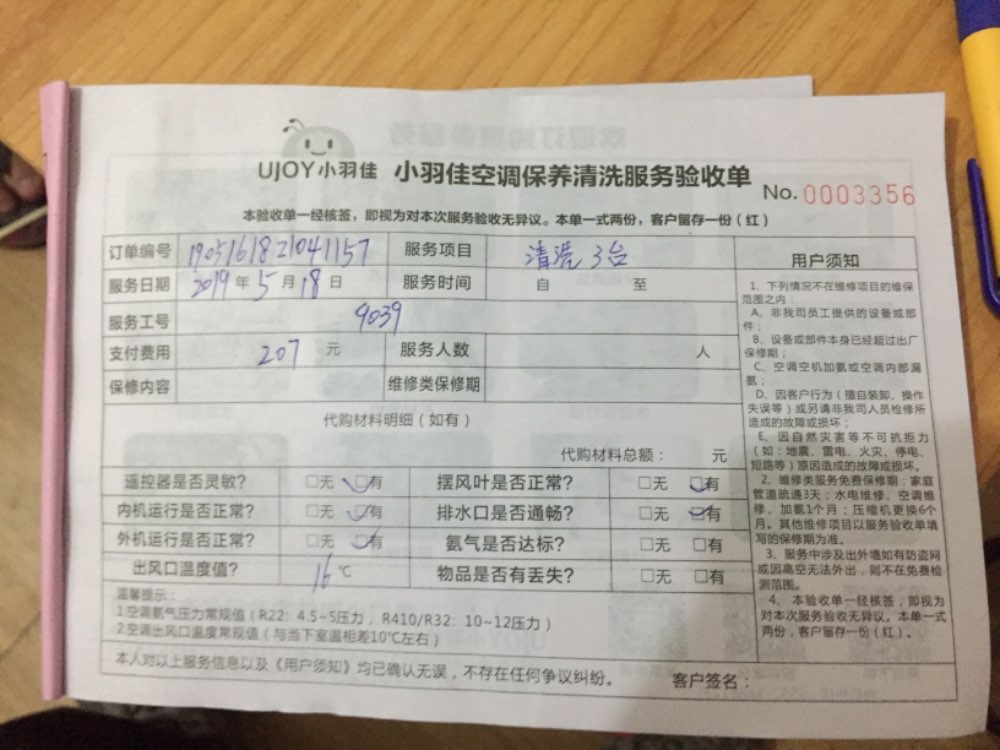 UJOY小羽佳 小羽佳空调保养清洗服务验收单
No. 0003356
本验收单一经核签，即视为对本次服务验收无异议。本单一式两份，客户留存一份（红）
订单编号 1905161821041157 服务项目 清洗3台
服务日期 2019年5月18日 服务时间 自 至
服务工号 9039
支付费用 207 元 服务人数 人
保修内容 维修类保修期
代购材料明细（如有）
代购材料总额： 元
遥控器是否灵敏? □无 □有 摆风叶是否正常? □无 □有
内机运行是否正常? □无 □有 排水口是否通畅? □无 □有
外机运行是否正常? □无 □有 氨气是否达标? □无 □有
出风口温度值? 16 ℃ 物品是否有丢失? □无 □有
温馨提示：
1.空调氨气压力常规值（R22：4.5~5压力，R410/R32：10~12压力）
2.空调出风口温度常规值（与当下室温相差10℃左右）
本人对以上服务信息以及《用户须知》均已确认无误，不存在任何争议纠纷。 客户签名：
用户须知
1、下列情况不在维修项目的维保
范围之内：
A、非我司员工提供的设备或部
件；
B、设备或部件本身已经超过出厂
保修期；
C、空调空机加氨或空调内部漏
氨；
D、因客户行为（擅自装卸、操作
失误等）或另请非我司人员检修所
造成的故障或损坏；
E、因自然灾害等不可抗拒力
（如：地震、雷电、火灾、停电、
短路等）原因造成的故障或损坏。
2、维修类服务免费保修期：家庭
管道疏通3天；水电维修、空调维
修、加氨1个月；压缩机更换6个
月。其他维修项目以服务验收单填
写的保修期为准。
3、服务中涉及出外墙如有防盗网
或因高空无法外出，则不在免费检
测范围。
4、本验收单一经核签，即视为
对本次服务验收无异议。本单一式
两份，客户留存一份（红）。